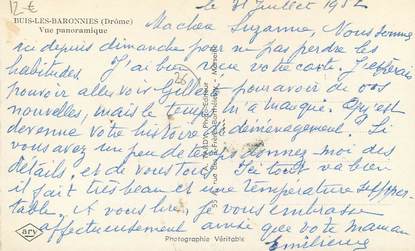 12-€
BUIS-LES-BARONNIES (Drôme)
Vue panoramique
le 31 Juillet 1952
Ma chère Suzanne, Nous sommes
ici depuis dimanche pour ne pas perdre les
habitudes. J'ai bien reçu votre carte. J'espérais
pouvoir aller voir pour avoir de vos
nouvelles, mais le temps m'a manqué. Qu'est
devenue votre histoire de déménagement. Si
vous avez un peu de temps donnez moi des
détails, et de vous tous. Ici tout va bien
il fait très beau et une température suppor-
table. A vous lire, je vous embrasse
affectueusement ainsi que votre maman
26
arv
Photographie Véritable